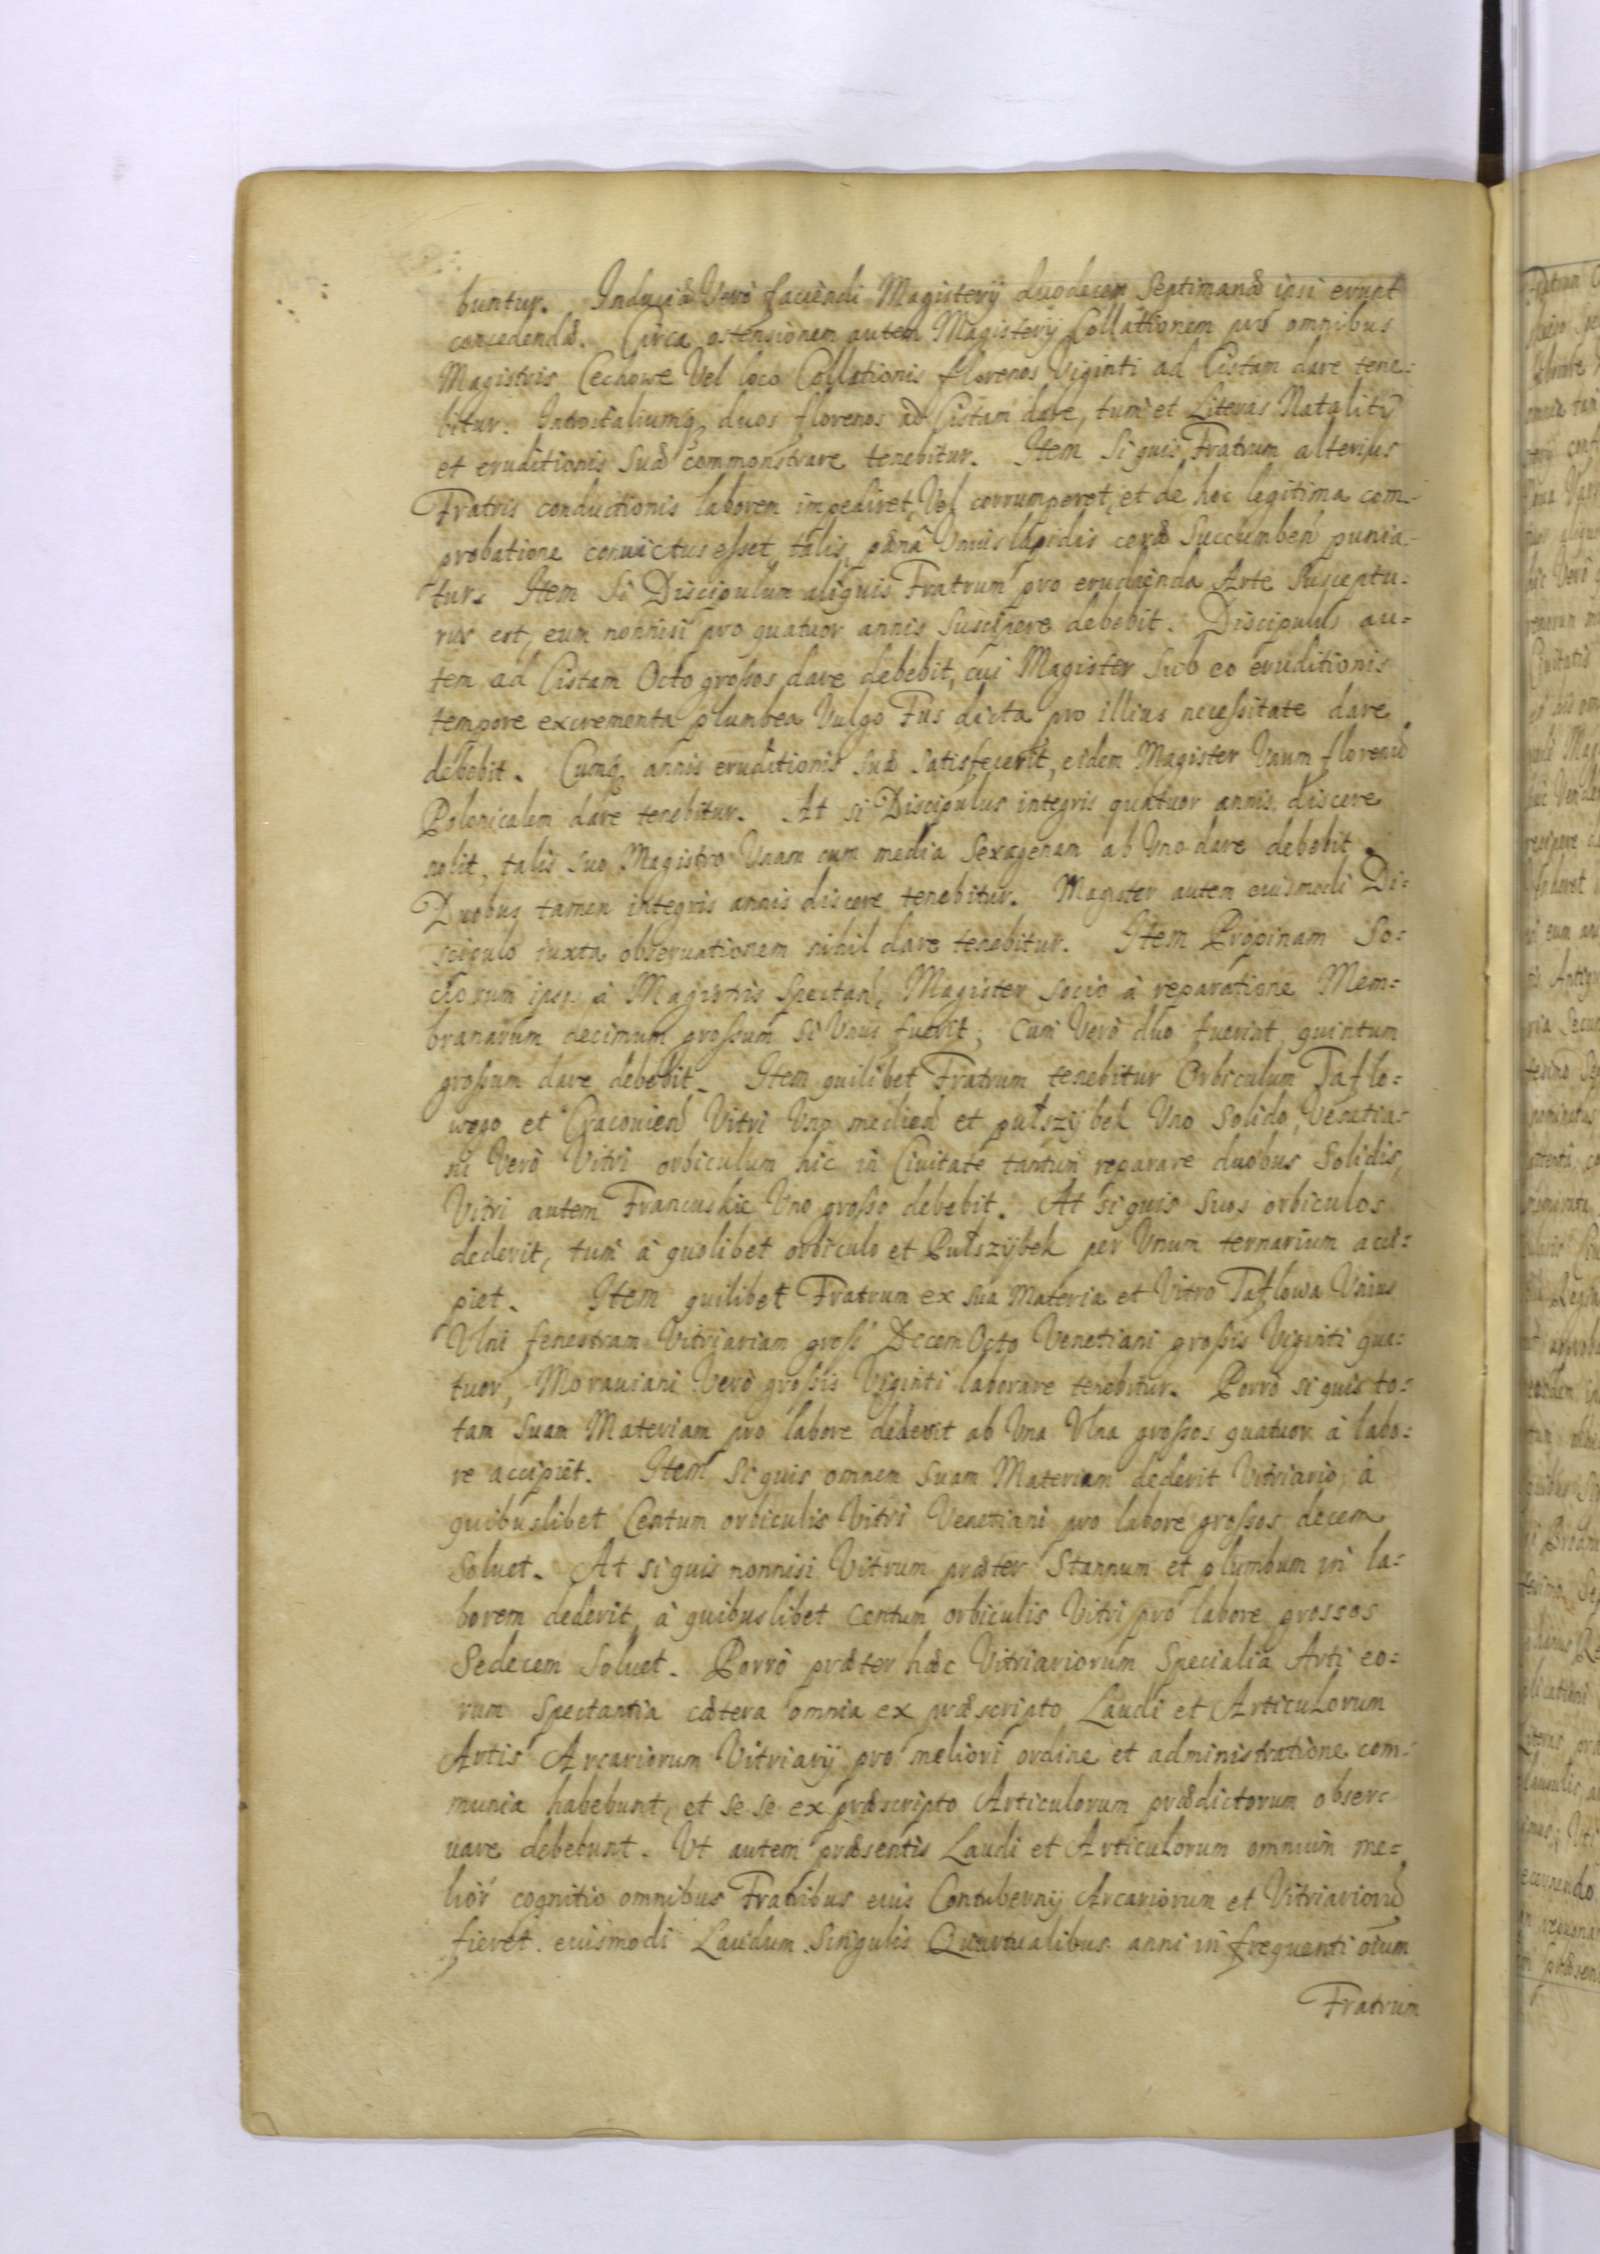 buntur. Induciæ Verò faciendi Magisterÿ duodecem Septimanæ ipsi erunt
concedendæ. Circa ostensionem autem Magisterÿ Collationem pro omnibus
Magistris Cechowe Vel loco Collationis florenos Viginti ad Cistam dare tene-
bitur. Introitaliumq duos florenos ad Cistam dare, tum et Literas Natalitÿ
et eruditionis Suæ commonstrare tenebitur. Item Si quis Fratrum alterius
Fratris conductionis laborem impediret, Vel corrumperet, et de hoc legitima com-
probatione conuictus esset, talis, pœnâ Vnius lapidis ceræ Succumben punia-
tur. Item Si Discipulum aliquis Fratrum pro erudienda Arte Susceptu-
rus est, eum nonnisi pro quatuor annis Suscipere debebit. Discipulus au-
tem ad Cistam Octo grossos dare debebit, cui Magister Sub eo eruditionis
tempore excrementa plumbea Vulgo Fus dicta pro illius necessitate dare
debebit. Cumq annis eruditionis Suæ Satisfecerit, eidem Magister Vnum florenũ
Polonicalem dare tenebitur. At si Discipulus integris quatuor annis discere
nolit, talis Suo Magistro Vnam cum media Sexagenam ab Vno dare debebit
Duobus tamen integris annis discere tenebitur. Magister autem eiusmodi Di-
scipulo iuxta obseruationem nihil dare tenebitur. Item Propinam So-
ciorum à Magistris Spectan, Magister Socio à reparatione Mem-
branarum decimum grossum Si Vnus fuerit; Cum Verò duo fuerint quintum
grossum dare debebit. Item quilibet Fratrum tenebitur Orbiculum Taflo-
wego et Cracouien Vitri Vno medien et pułszÿbek Vno Solido, Venetia-
ni Verò Vitri orbiculum hic in Ciuitate tantum reparare duobus Solidis,
Vitri autem Francuskie Vno grosso debebit. At si quis Suos orbiculos
dederit, tum à quolibet orbiculo et Pułszÿbek per Vnum ternarium acci-
piet. Item quilibet Fratrum ex Sua Materia et Vitro Taflowa Vnius
Vlni fenestram Vitriariam gross Decem Octo Venetiani grossis Viginti qua-
tuor, Morauiani Verò grossis Viginti laborare tenebitur. Porrò si quis to-
tam Suam Materiam pro labore dederit ab Vna Vlna grossos quatuor à labo-
re accipiet. Item Si quis omnem Suam Materiam dederit Vitriario, à
quibuslibet Centum orbiculis Vitri Venetiani pro labore grossos decem
Soluet. At si quis nonnisi Vitrum præter Stannum et plumbum in la-
borem dederit, à quibuslibet Centum orbiculis Vitri pro labore grossos
Sedecem Soluet. Porrò præter hæc Vitriariorum Specialia Arti eo-
rum Spectantia cætera omnia ex præscripto Laudi et Articulorum
Artis Arcariorum Vitriarÿ pro meliori ordine et administratione com-
munia habebunt, et se se ex præscripto Articulorum prædictorum obser-
uare debebunt. Vt autem præsentis Laudi et Articulorum omnium me-
lior cognitio omnibus Fratribus eius Contubernÿ Arcariorum et Vitriariorũ
fieret. eiusmodi Laudum Singulis Quartualibus anni in frequenti oium
Fratrum